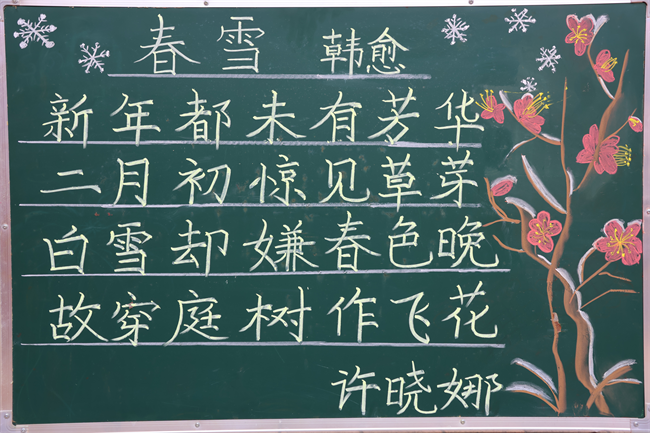 春雪 韩愈
新年都未有芳华
二月初惊见草芽
白雪却嫌春色晚
故穿庭树作飞花
许晓娜